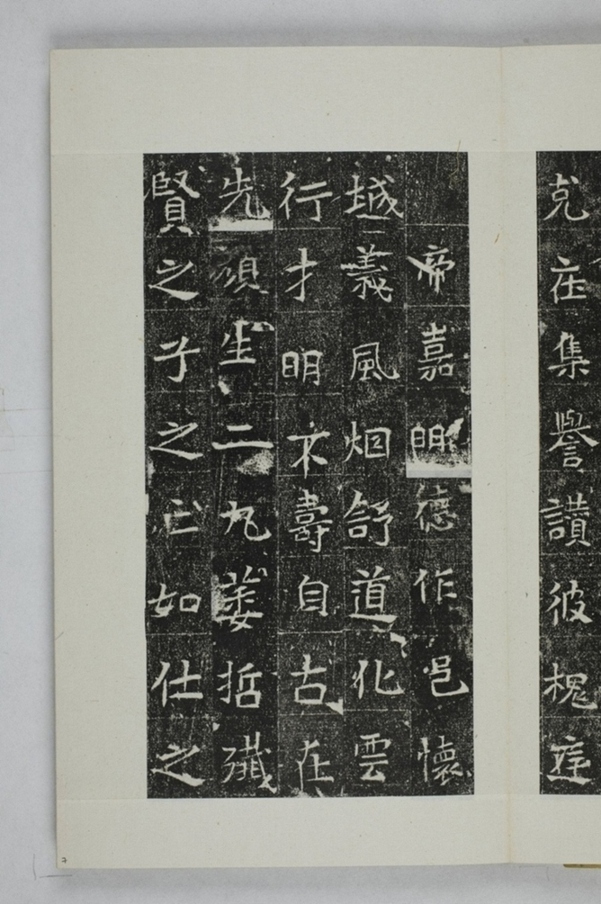 克庄集譽讚彼槐庭
帝嘉明德作邑懷
城義風烟舒道化雲
行才明不壽自古在
先顔生二九萎哲殲
賢之子之亡如仕之